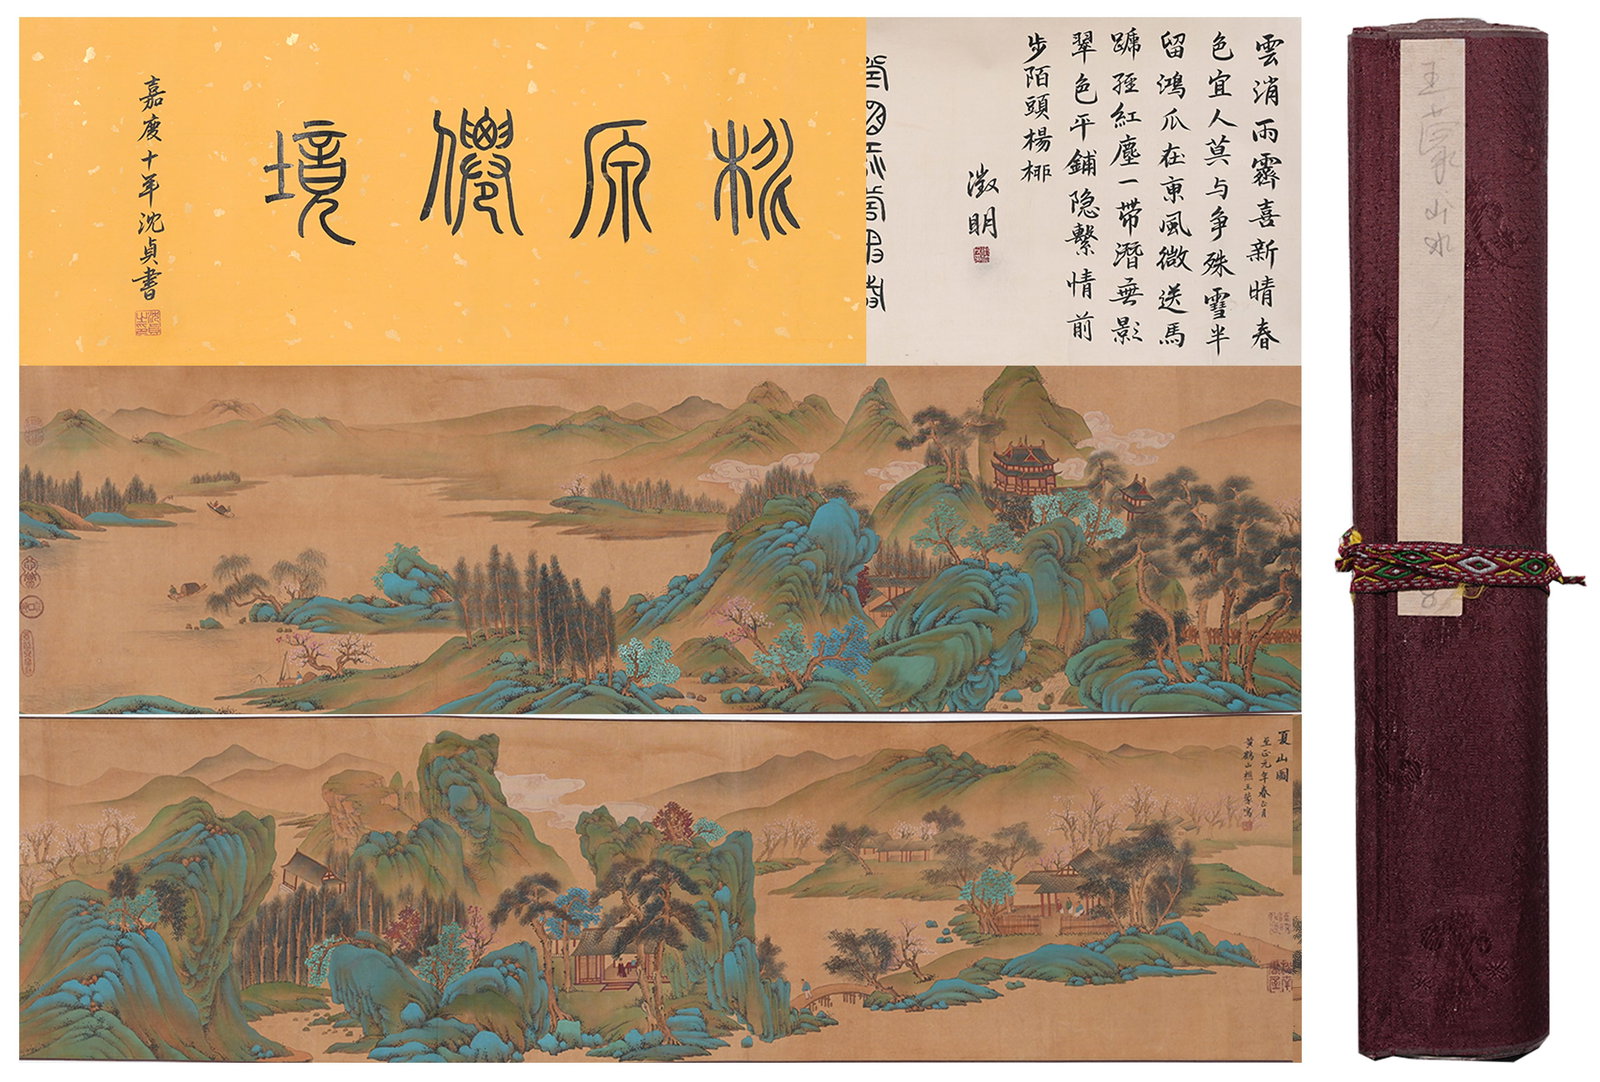 桃原僊境
嘉慶十年沈貞書
雲消雨霽喜新晴春
色宜人莫与争殊雪半
留鴻爪在東風微送馬
蹄軽紅塵一帶潛無影
翠色平鋪隐繫情前
步陌頭楊栁
澂明
夏山圖
至正元年春正月
黃鶴山樵王蒙寫
王蒙山水